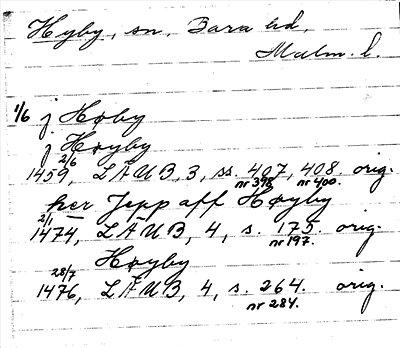 Hyby, sn, Bara hd,
Malm. l.
1/6 j Høby
j Høyby
2/6
1459, LÄUB, 3, ss. 407, 408. orig.
nr 398 nr 400.
her Jepp aff Høyby
2/1
1474, LÄUB, 4, s. 175. orig.
nr 197.
Høyby
28/7
1476, LÄUB, 4, s. 264. orig.
nr 284.